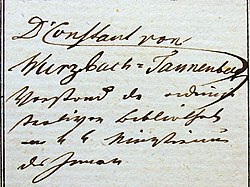 Dr Constant von
Wurzbach-Tannenberg
Vorstand der administrativen
Bibliothek
im k k Ministerium
des Innern